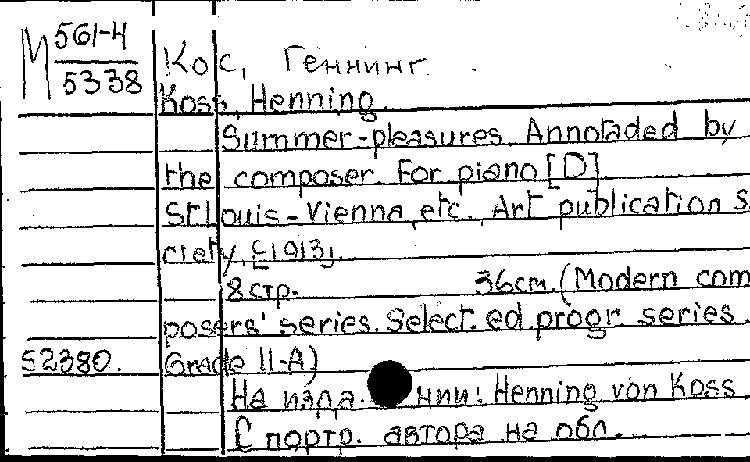 М 561-4
5338
Кос, Геннинг.
Koss, Henning.
Summer-pleasures. Annotaded by
the composer. For piano [D]
St Louis-Vienna, etc., Art publication s
ciety, [1913].
8 стр. 36 см. (Modern com
posers' series. Select. ed. progr. series.
52380. Grade II-A)
На изда нии: Henning von Koss.
С портр. автора на обл.